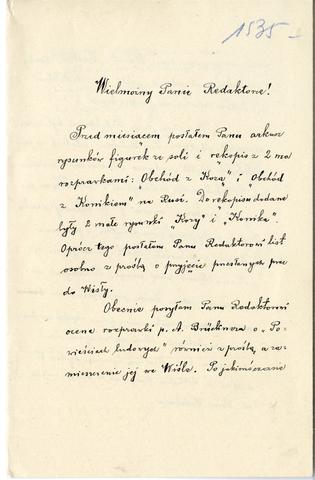 1535
Wielmożny Panie Redaktorze!
Przed miesiącem posłałem Panu arkusz
rysunków figurek ze soli i rękopis z 2 ma
rozprawkami: "Obchód z Kozą" i "Obchód
z Konikiem" na Rusi. Do rękopisu dodane
były 2 małe rysunki "Kozy" i "Konika".
Oprócz tego posłałem Panu Redaktorowi list
osobno z prośbą o przyjęcie przesłanych prac
do Wisły.
Obecnie posyłam Panu Redaktorowi
ocenę rozprawki p. A. Brücknera o "Po-
wieściach ludowych" również z prośbą, o za-
mieszczenie jej we Wiśle. Po jakimś czasie